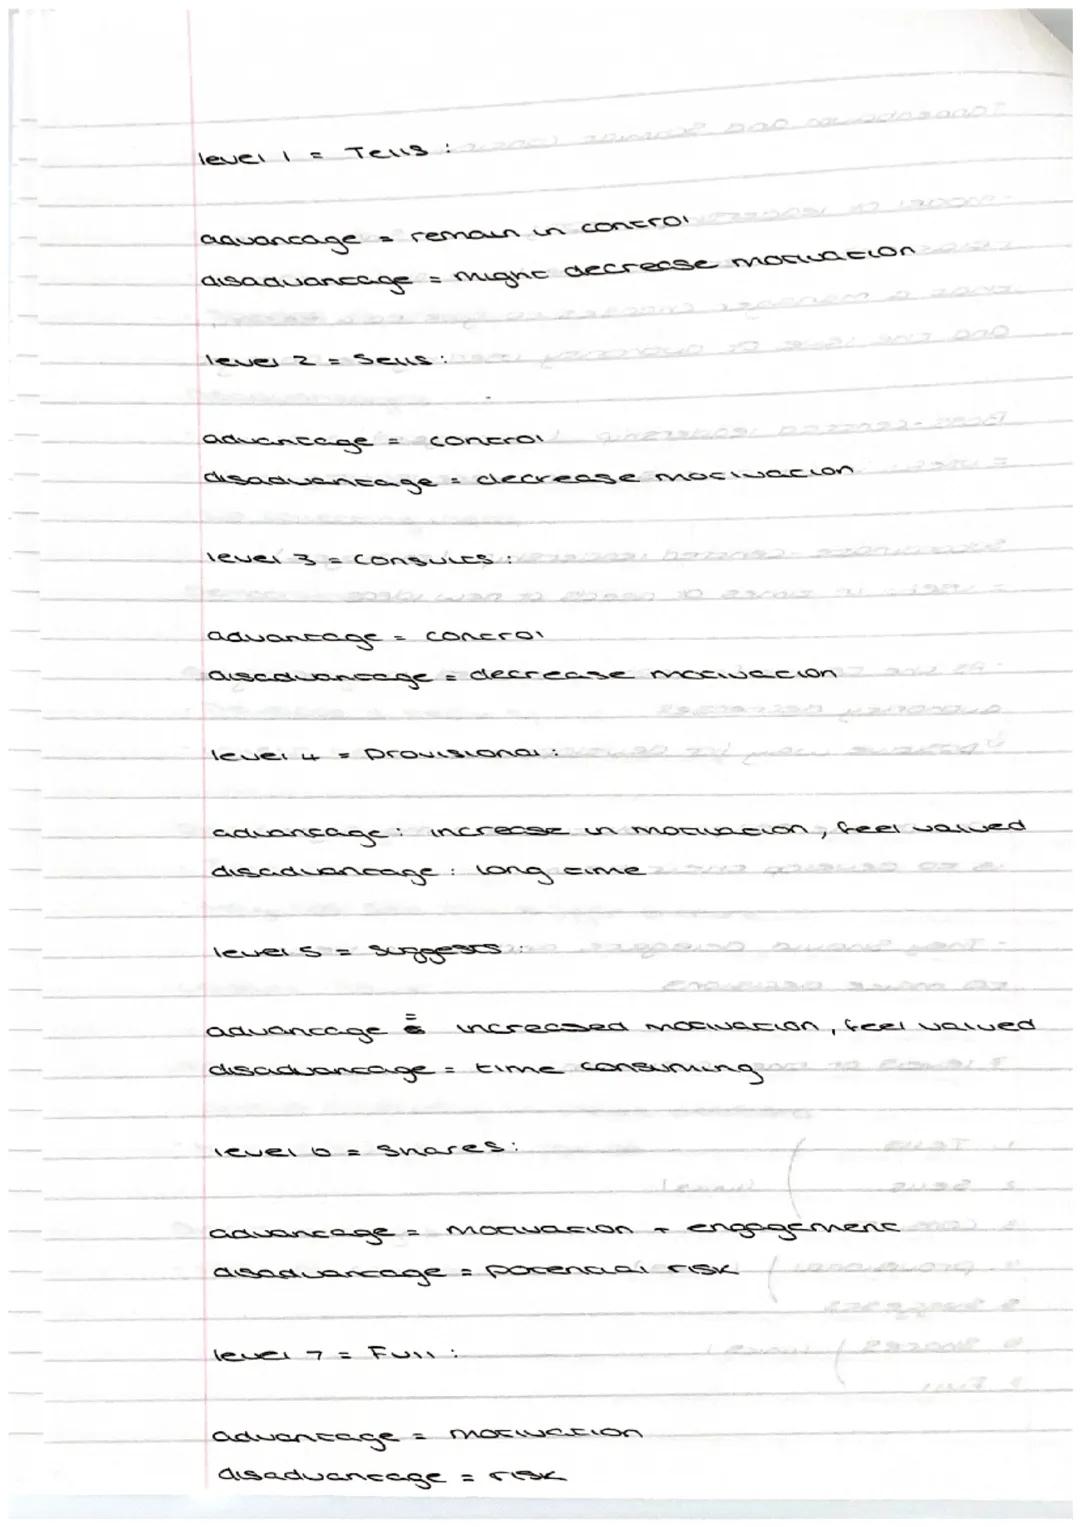 level 1 = Tells :
advantage = remain in control
disadvantage = might decrease motivation
level 2 = Sells :
advantage = control
disadvantage = decrease motivation
level 3 = consults :
advantage = control
disadvantage = decrease motivation
level 4 = provisional :
advantage : increase in motivation, feel valued
disadvantage : long time
level 5 = suggests :
advantage = increased motivation, feel valued
disadvantage = time consuming
level 6 = shares :
advantage = motivation + engagement
disadvantage = potential risk
level 7 = Full :
advantage = motivation
disadvantage = risk